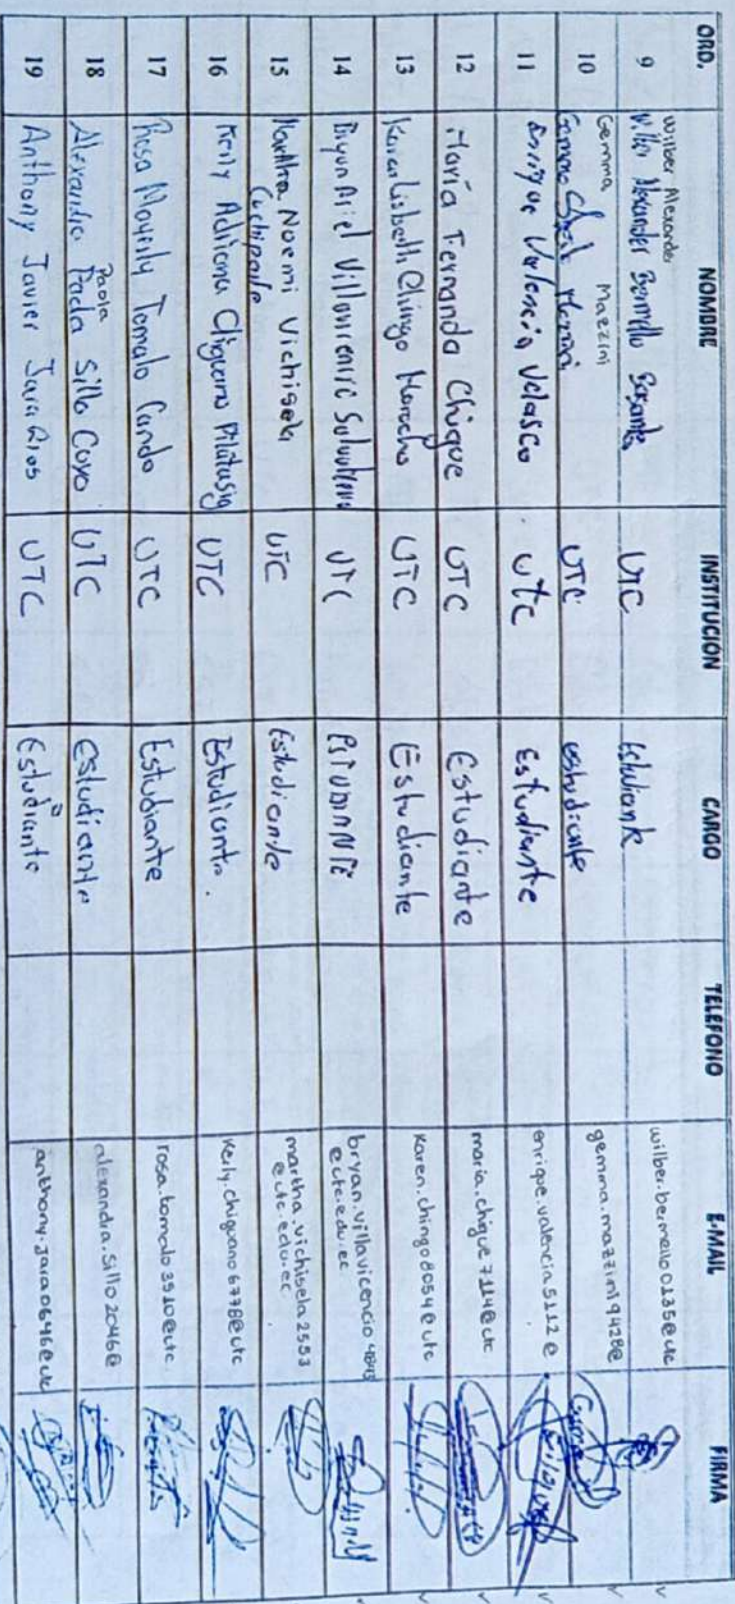 ORD. NOMBRE INSTITUCIÓN CARGO TELEFONO E-MAIL FIRMA
Wilber Alexander
9 Wilber Alexander Bermello Basantes UTC Estudiante wilber.bermello0135@utc
Gemma Mazzini
10 Gemma Mazzini UTC estudiante gemma.mazzini9428@
11 Enrique Valencia Velasco utc Estudiante enrique.valencia5112@
12 María Fernanda Chigue UTC Estudiante maria.chigue7114@utc
13 Karen Lisbeth Chingo Morocho UTC Estudiante Karen.chingo8054@utc
14 Bryan Ariel Villavicencio UTC ESTUDIANTE bryan.villavicencio
@utc.edu.ec
15 Martha Noemi Vichisela UTC Estudiante martha.vichisela2553
@utc.edu.ec
16 Kerly Adriana Chiguano Pilatasig UTC Estudiante. Kerly.chiguano6778@utc
17 Rosa Mayerly Tomalo Pando UTC Estudiante rosa.tomalo3510@utc
Paola
18 Alexandra Paola Sillo Cuyo UTC Estudiante alexandra.sillo2046@
19 Anthony Javier Jara Rios UTC Estudiante anthony.jara0646@utc